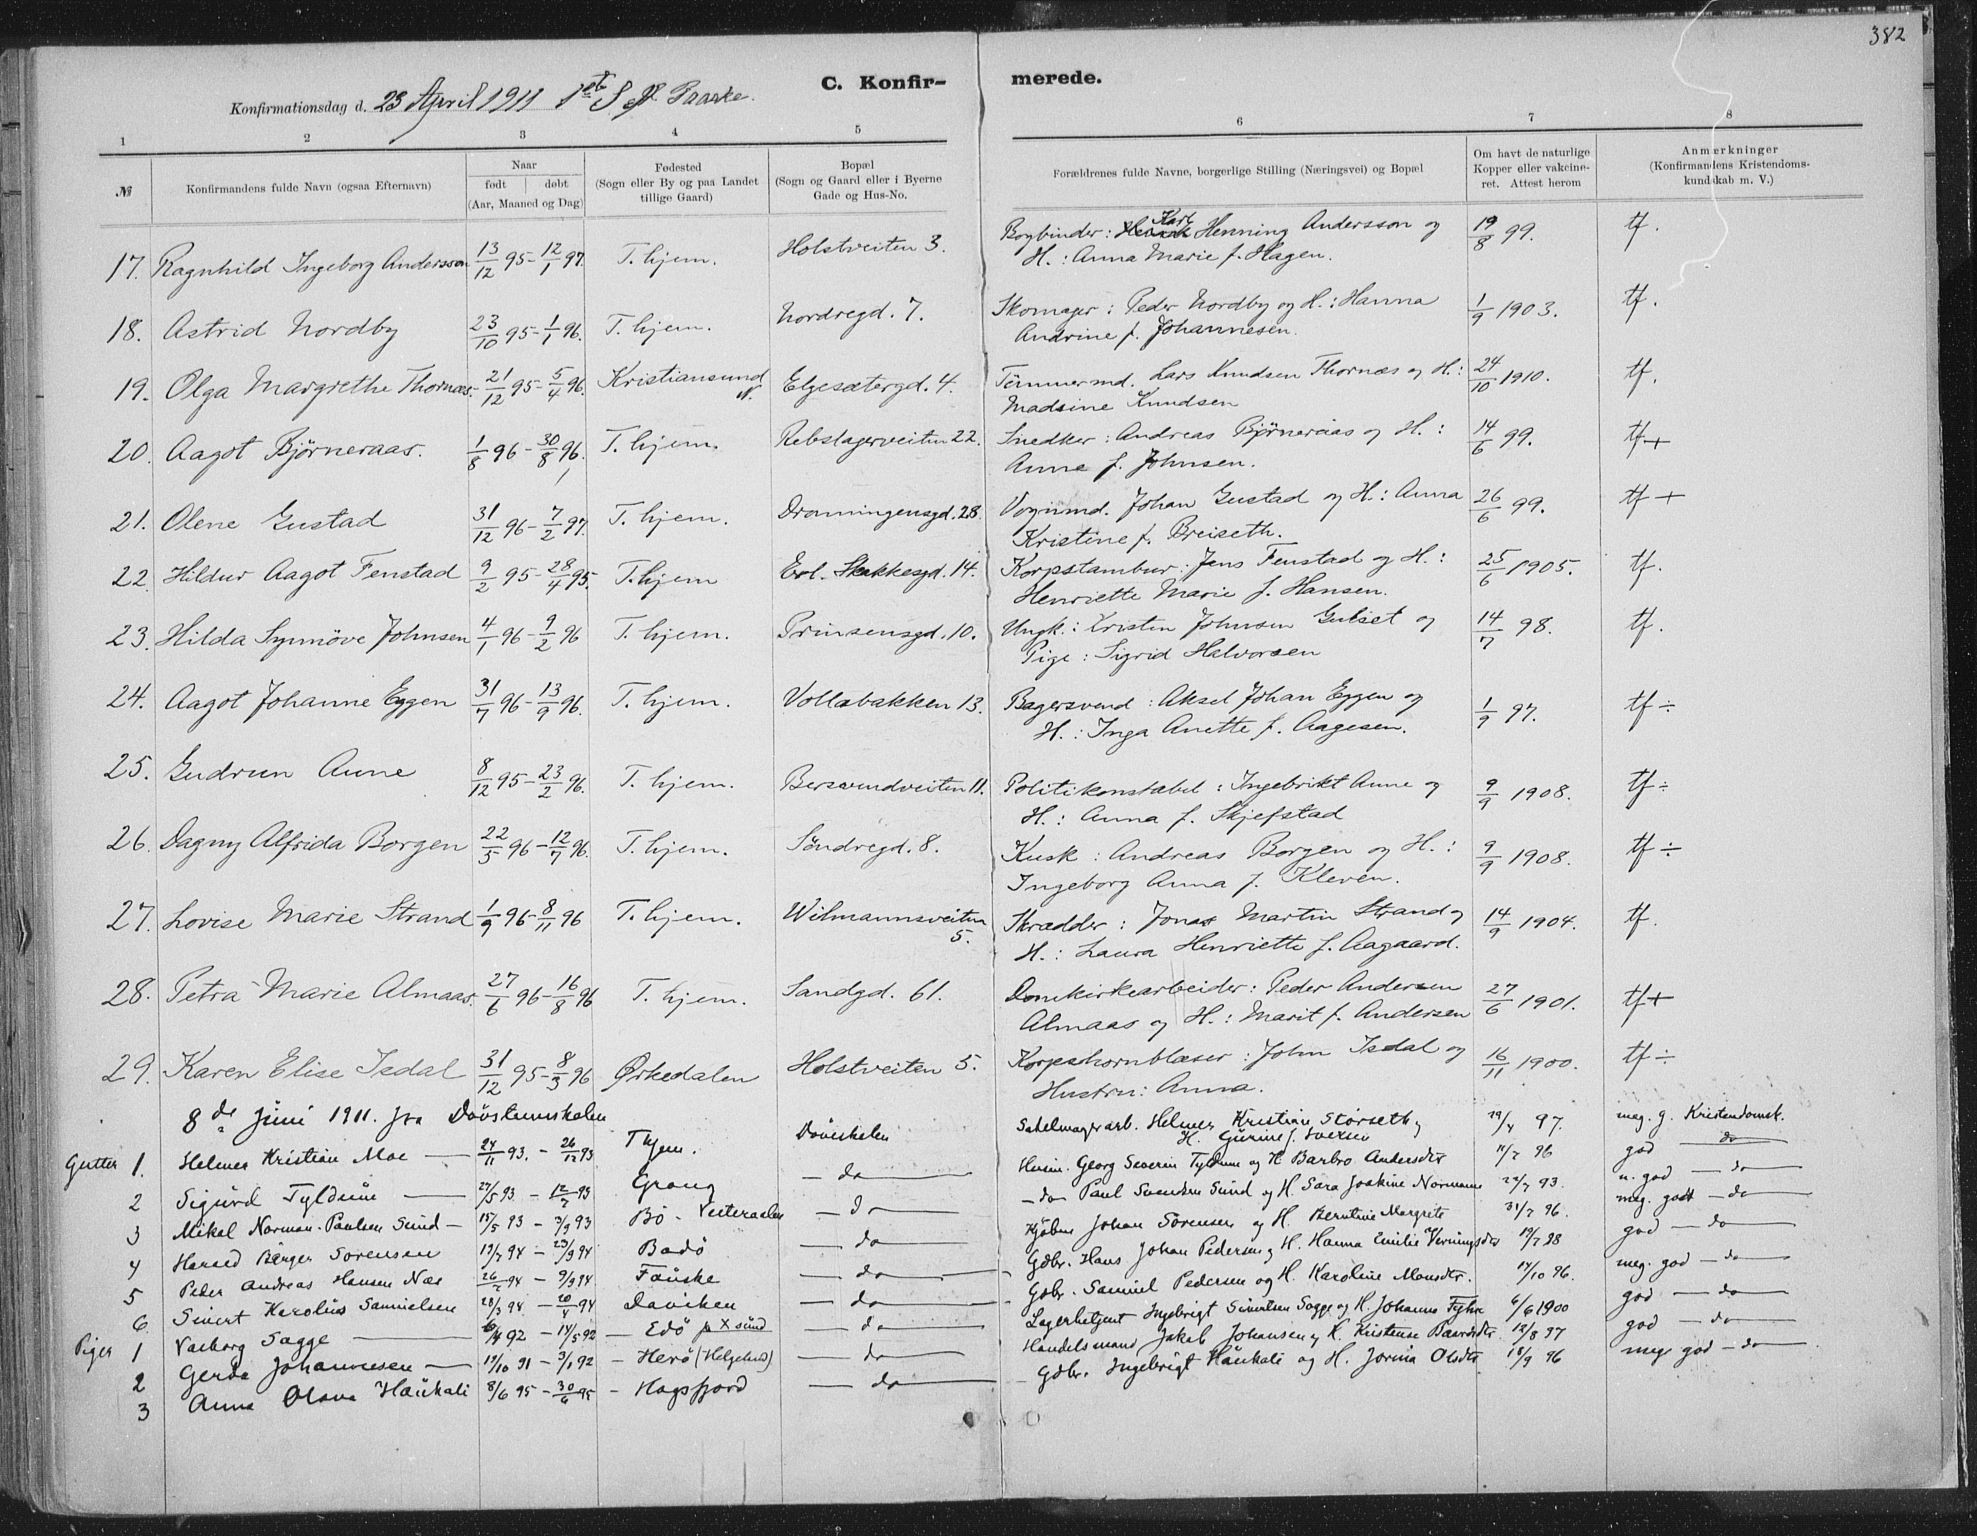 382
C. Konfir- merede.
Konfirmationsdag d. 23 April 1911 1st S. e. Paaske.
1 2 3 4 5 6 7 8
№ Konfirmandens fulde Navn (ogsaa Efternavn) Naar født døbt (Aar, Maaned og Dag) Fødested (Sogn eller By og paa Landet tillige Gaard) Bopæl (Sogn og Gaard eller i Byerne Gade og Hus-No.) Forældrenes fulde Navne, borgerlige Stilling (Næringsvei) og Bopæl Om havt de naturlige Kopper eller vakcineret. Attest herom Anmerkninger (Konfirmandens Kristendomskundskab m. V.)
17. Ragnhild Ingeborg Andersson 13/12 95 - 12/1 97. T.hjem. Holstveiten 3. Bogbinder: Karl Henning Andersson og 19/8 99. tf.
H.: Anna Marie f. Hagen.
18. Astrid Nordby 23/10 95 - 1/1 96. T.hjem. Nordregd. 7. Skomager: Peder Nordby og H.: Hanna 1/9 1903. tf.
Andrine f. Johannesen.
19. Olga Margrethe Thornæs. 21/12 95 - 5/4 96. Kristiansund N. Elgesætergd. 4. Tømmermd. Lars Knudsen Thornæs og H.: 24/10 1910. tf.
Madsine Knudsen
20. Aagot Bjørneraas. 1/8 96 - 30/8 96. T.hjem. Rebslagerveiten 22. Snedker: Andreas Bjørneraas og H.: 14/6 99. tf+
Anne f. Johnsen.
21. Olene Gustad 31/12 96 - 7/2 97. T.hjem. Dronningensgd. 28. Vognmd. Johan Gustad og H.: Anna 26/6 99. tf +
Kristine f. Breiseth.
22. Hildur Aagot Fenstad 9/2 95 - 28/4 95. T.hjem Erl. Skakkesgd. 14. Korpstambur: Jens Fenstad og H.: 25/6 1905. tf.
Henriette Marie f. Hansen.
23. Hilda Synnöve Johnsen 4/1 96 - 9/2 96 T.hjem. Prinsensgd. 10. Ungk.: Kristen Johnsen Gulset og 14/7 98. tf.
Pige: Sigrid Halvorsen
24. Aagot Johanne Eggen 31/7 96 - 13/9 96. T.hjem. Vollabakken 13. Bagersvend: Aksel Johan Eggen og 1/9 97. tf ÷
H.: Inga Anette f. Aagesen.
25. Gudrun Aune 8/12 95 - 23/2 96. T.hjem. Bersvendveiten 11. Politikonstabel: Ingebrikt Aune og 9/9 1908. tf ÷
H.: Anna f. Skjefstad
26. Dagny Alfrida Borgen 22/5 96 - 12/7 96. T.hjem. Söndregd. 8. Kusk: Andreas Borgen og H.: 9/9 1908. tf ÷
Ingeborg Anna f. Kleven.
27. Lovise Marie Strand 1/9 96 - 8/11 96 T.hjem. Wilmannsveiten 5. Skrædder: Jonas Martin Strand og 14/9 1904. tf.
H.: Laura Henriette f. Aagaard.
28. Petra Marie Almaas. 27/6 96 - 16/8 96 T.hjem. Sandgd. 61. Domkirkearbeider: Peder Andersen 27/6 1901. tf+
Almaas og H.: Marit f. Andersen
29. Karen Elise Isdal 31/12 95 - 8/3 96 Ørkedalen Holstveiten 5. Korpshornblæser: John Isdal og 16/11 1900. tf ÷
Hustru: Anna.
8de Juni 1911. fra Dövstumskolen
Gutter 1. Helmer Kristian Moe 24/11 93. - 26/12 93 Thjem. Döveskolen Sadelmagerarb. Helmer Kristian Störseth og H. Gurine f. Iversen 97. meg. g. Kristendomsk.
2 Sigurd Tyldum 27/5 93 - 12/7 93 Grong do Husm. Georg Severin Tyldum og H Barbro Andersdtr 11/7 96 god do
3 Mikal Norman Paulsen Sund 15/5 93 - 3/9 93 Bö - Vesteraalen do do Paul Svendsen Sund og H. Sara Joakine Normann 93. n. god do
4 Harald Birger Sorensen 19/7 94 - 23/9 94 Bodö do Kjöbm Johan Sörensen og H. Berntine Margrete 31/7 96. meg. godt do
5 Peder Andreas Hansen Næs 26/2 94 - 9/9 94 Fauske do Gdbr. Hans Johan Pedersen og H. Hanna Emilie 19/7 98 god do
6. Sivert Karolius Samuelsen 28/3 94 - 94 Daviken do Gdbr. Samuel Pedersen og H. Karoline Monsdtr. 14/10 96. meg. god do
Piger 1 Valborg Sagge 6/4 92 - 14/5 92 Edö p Xsund do Lagerbetjent Ingebrigt Sivertsen Sagge og H. Johanne 6/6 1900 god do
2 Gerda Johannesen 19/10 91 - 3/1 92 Herö (Helgeland) do Handelsmand Jakob Johansen og H. Kristense 12/8 97 god do
3 Anna Olava Haukali 8/6 95 - 30/6 95 Högsfjord do Gdbr. Ingebrigt Haukali og H. Jorina Olsdtr 18/9 96 meg. god - do